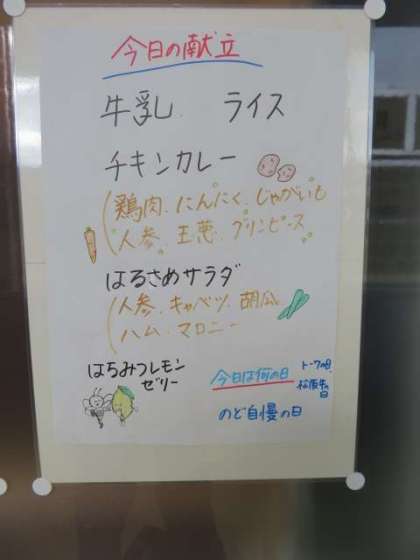 今日の献立
牛乳. ライス
チキンカレー
(鶏肉.にんにく.じゃがいも
人参.玉葱.グリンピース
はるさめサラダ
(人参.キャベツ.胡瓜
ハム.マロニー
はちみつレモン
ゼリー
今日は何の日
トークの日
松阪牛の
日
のど自慢の日